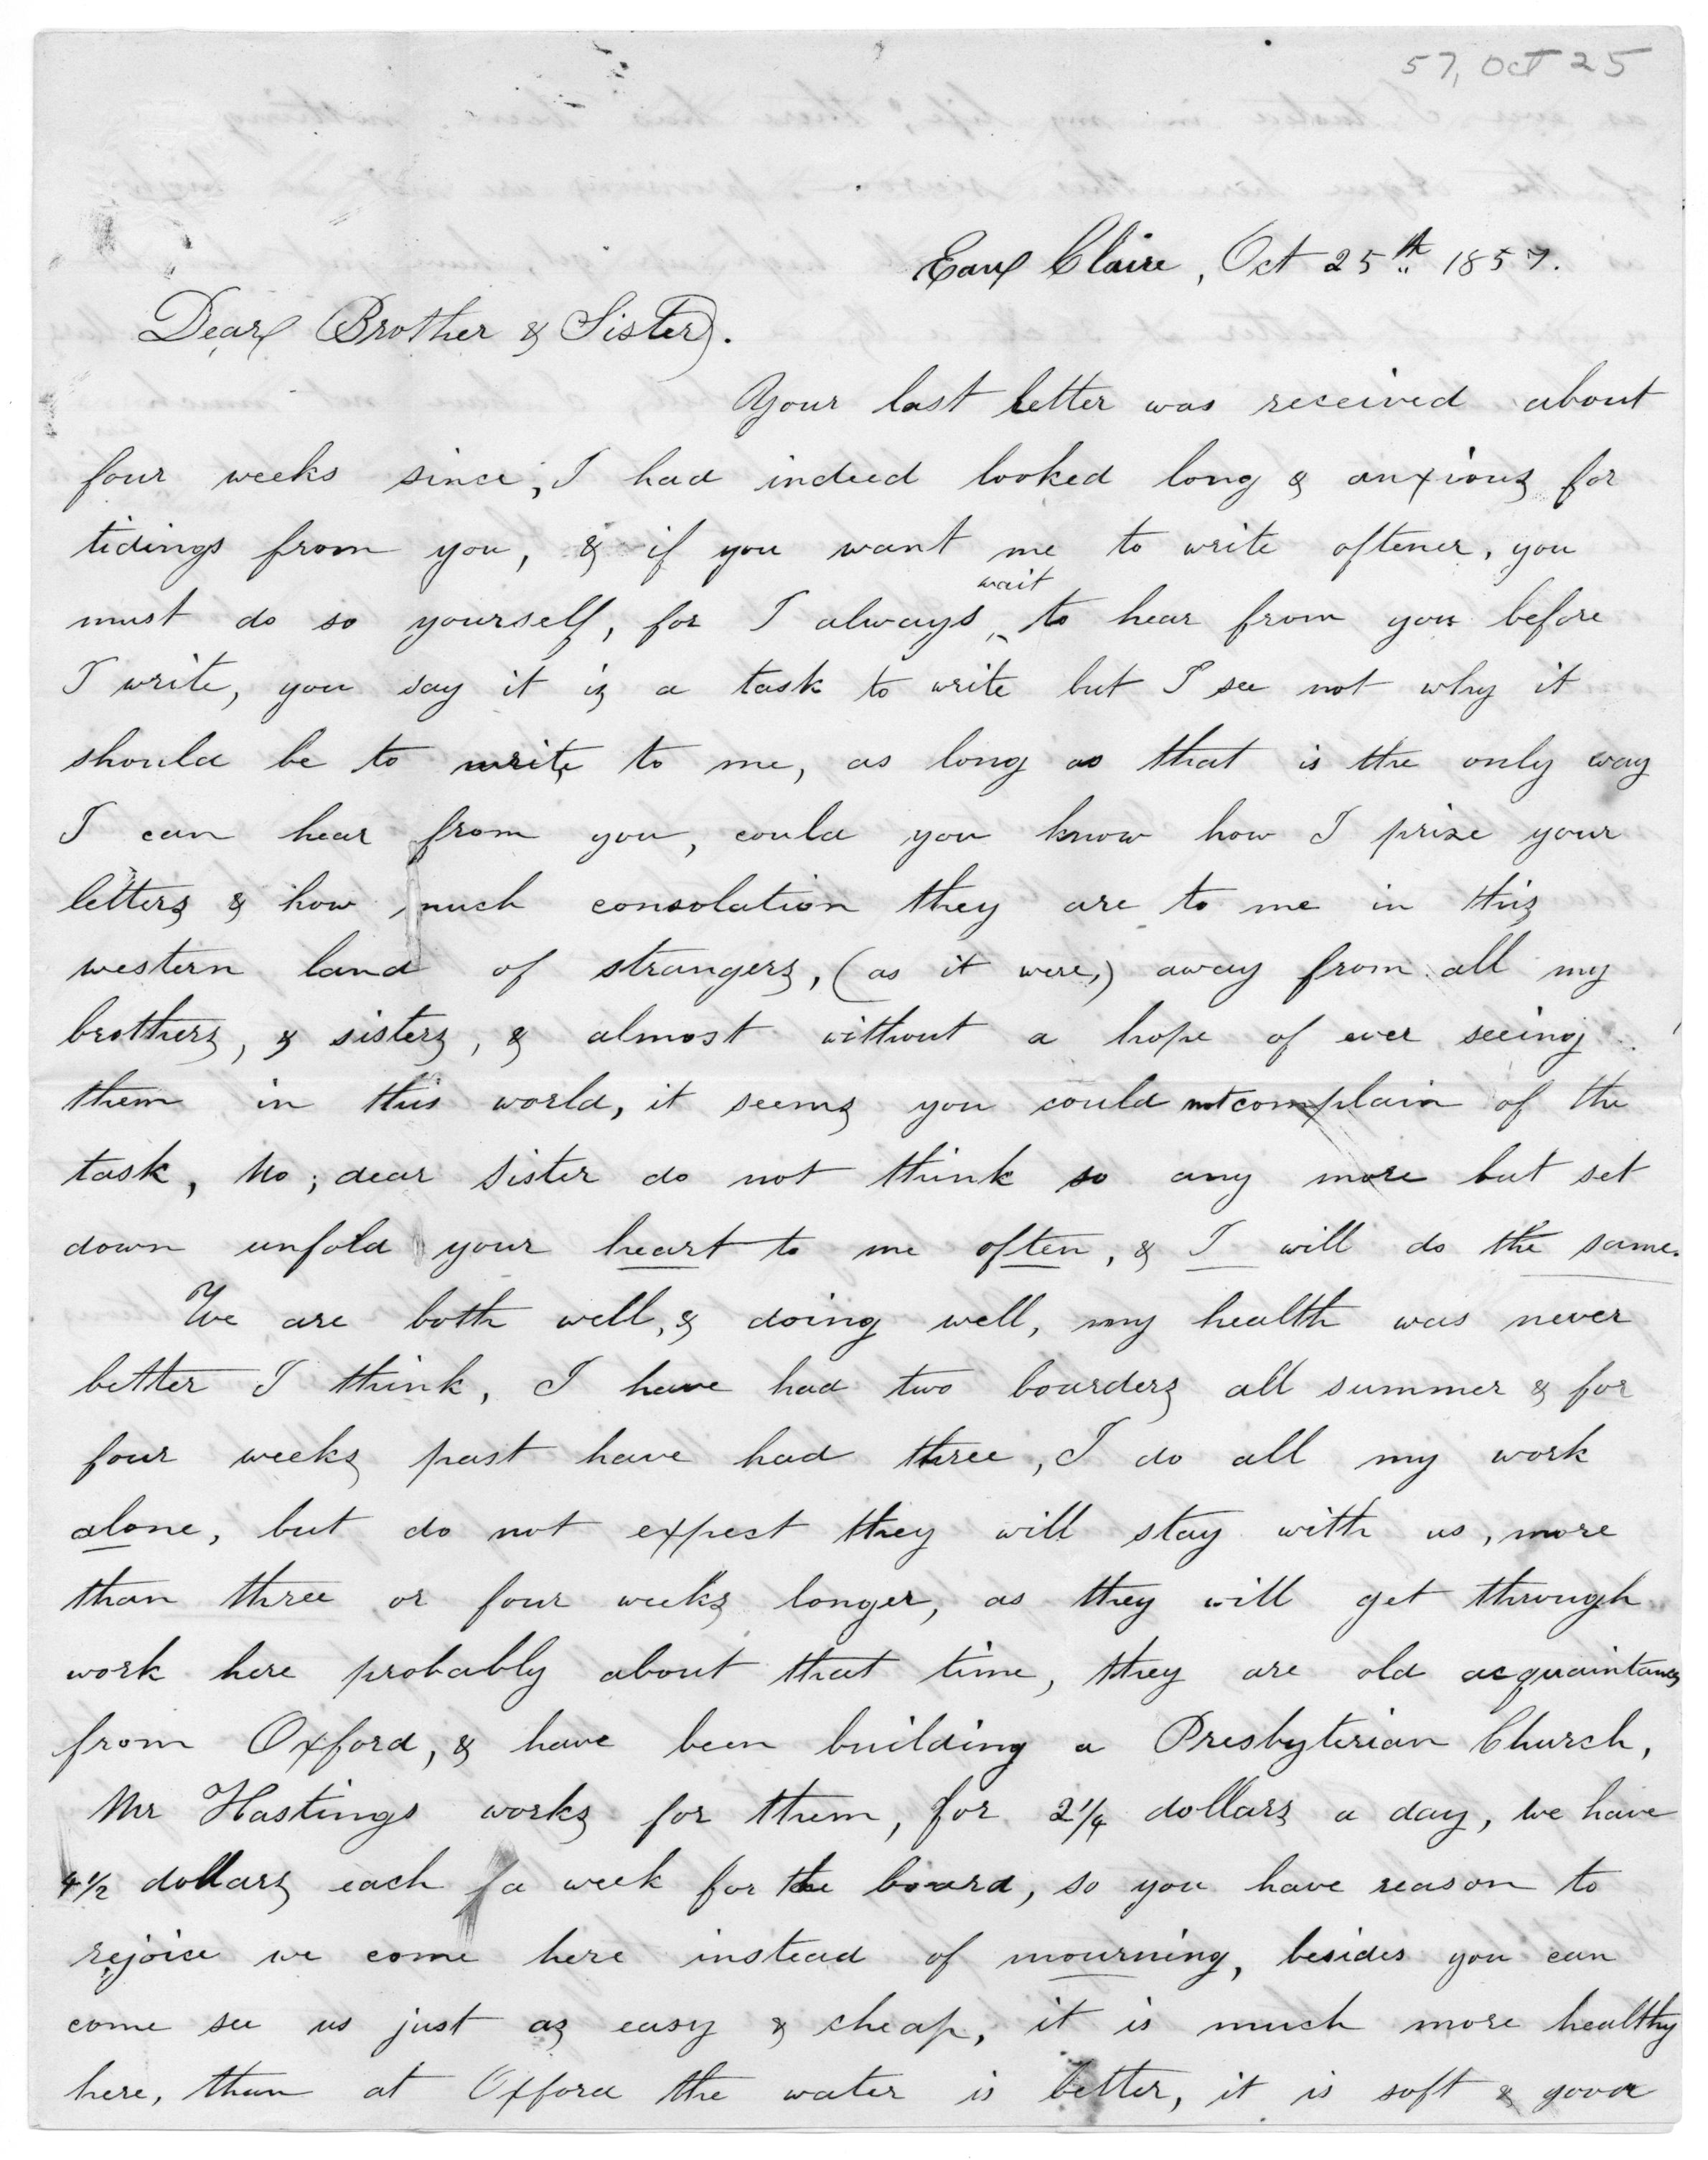 57, Oct 25
Eaux Claire, Oct 25th 1857.
Dear Brother & Sister.
Your last letter was received about
four weeks since, I had indeed looked long & anxious for
tidings from you, & if you want me to write oftener, you
wait
must do so yourself, for I always ^ to hear from you before
I write, you say it is a task to write but I see not why it
should be to write to me, as long as that is the only way
I can hear from you, could you know how I prize your
letters & how much consolation they are to me in this
western land of strangers, (as it were,) away from all my
brothers, & sisters, & almost without a hope of ever seeing
them in this world, it seems you could not complain of the
task, No; dear Sister do not think so any more but set
down unfold your heart to me often, & I will do the same.
We are both well, & doing well, my health was never
better I think, I have had two boarders all summer & for
four weeks past have had three, I do all my work
alone, but do not expect they will stay with us, more
than three or four weeks longer, as they will get through
work here probably about that time, they are old acquaintances
from Oxford, & have been building a Presbyterian Church,
Mr Hastings works for them, for 2 1/4 dollars a day, we have
4 1/2 dollars each a week for the board, so you have reason to
rejoice we come here instead of mourning, besides you can
come see us just as easy & cheap, it is much more healthy
here, than at Oxford the water is better, it is soft & good